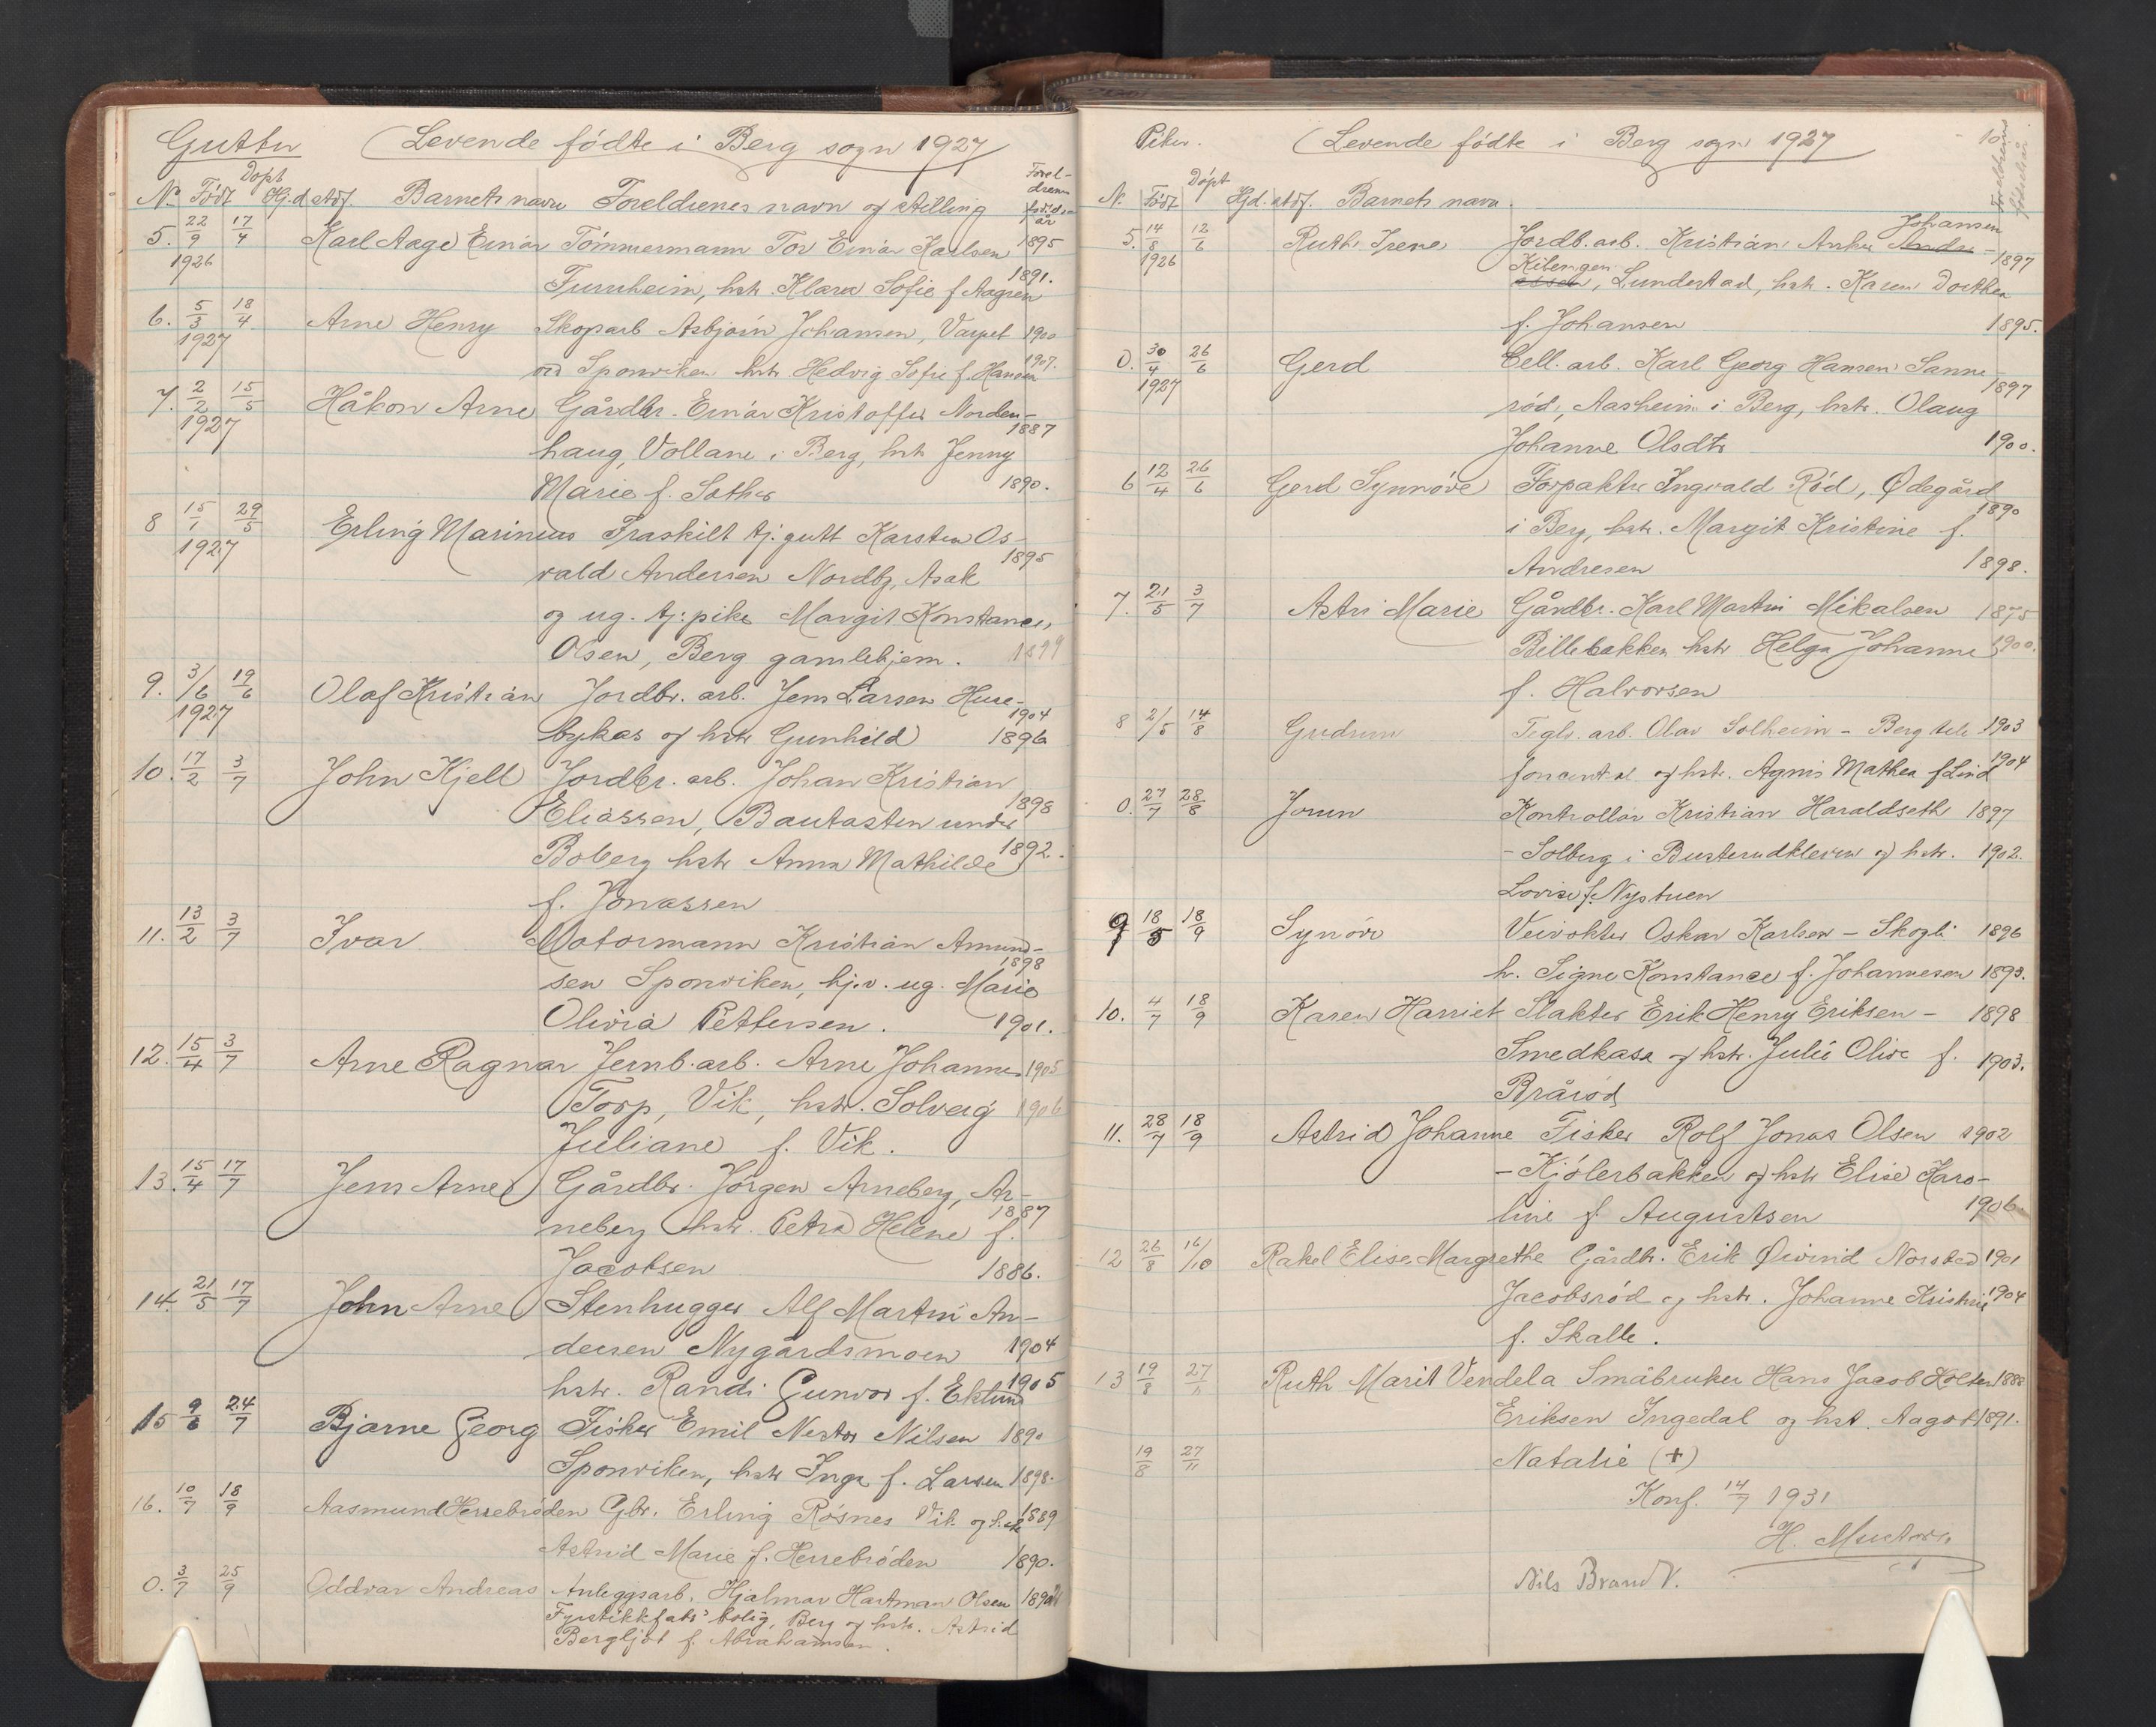 Gutter (Levende födte i Berg sogn 1927
Döpt Forel-
drenes
No Född Hj.d. stdf. Barnets navn Foreldrenes navn og stilling fødsels
år
5. 22/9 17/4 Karl Aage Einar Tömmermann Tor Einar Karlsen 1895
1926 Furuheim, hstr. Klara Sofie f Aagren 1891.
6. 5/3 18/4 Arne Henry Skoparb Asbjörn Johansen, Varpet 1900
1927 ved Sponviken hstr. Hedvig Sofie f. Hansen 1907.
7. 2/2 15/5 Håkon Arne Gårdbr. Einar Kristoffer Norden-
1927 haug, Vollane i Berg, hstr Jenny 1887
Marie f. Sæther 1890.
8 15/1 29/5 Erling Marinius Fraskilt tj. gutt Karsten Os-
1927 vald Andersen Nordby, Asak 1895
og ug. tj: pike Margit Konstance
Olsen, Berg gamlehjem. 1899
9. 3/6 19/6 Olaf Kristian Jordbr. arb. Jens Larsen Huse-
1927 bykas og hstr Gunhild 1904 1896
10. 17/2 3/7 John Kjell Jordbr. arb. Johan Kristian
Eliassen, Bautasten under 1898
Boberg hstr Anna Mathilde 1892.
f. Jonassen
11. 13/2 3/7 Ivar Motormann Kristian Amund-
sen Sponviken, hj.v. ug. Marie 1898
Olivia Pettersen. 1901.
12. 15/4 3/7 Arne Ragnar Jernb. arb. Arne Johannes 1905
Torp, Vik, hstr. Solveig 1906
Juliane f. Vik.
13. 15/4 17/7 Jens Arne Gårdbr. Jörgen Arneberg, Ar-
neberg hstr. Petra Helene f. 1887
Jacobsen 1886.
14. 21/5 17/7 John Arne Stenhugger Alf Martin An-
dersen Nygårdsmoen 1904
hstr. Randi Gunvor f. Eklund 1905
15 9/6 24/7 Bjarne Georg Fisker Emil Nestor Nilsen 1890
Sponviken, hstr Inga f. Larsen 1898.
16. 10/7 18/9 Aasmund Herrebröden Gbr. Erling Rösnes Vik og h. 1889
Astrid Marie f. Herrebröden 1890.
0. 3/7 25/9 Oddvar Andreas Anleggsarb. Hjalmar Hartman Olsen
Fyrstikkfabr' bolig, Berg og hstr. Astrid
Bergljot f. Abrahamsen.
Piker. (Levende födte i Berg sogn 1927 10
Foreldrenes
fødselsår
Döpt
N. Född Hjd. stdf. Barnets navn.
Johansen
5. 14/8 12/6 Ruth Irene Jordb. arb. Kristian Anker Andre-
1926 Kilengen 1897
essen, Lundestad, hstr. Karen Dorthea
f. Johansen 1895.
0. 30/4 26/6 Gerd Cell. arb. Karl Georg Hansen Sanne-
1927 röd, Aasheim i Berg, hstr. Olaug 1897
Johanne Olsdtr 1900.
6 12/4 26/6 Gerd Synnöve Forpakter Ingvald Röd, Ødegård
i Berg, hstr. Margit Kristine f. 1890
Andresen 1898.
7. 21/5 3/7 Astri Marie Gårdbr. Karl Martin Mikalsen 1875
Billebakken hstr Helga Johanne 1900.
f. Halvorsen
8 2/5 14/8 Gudrun Teglv. arb. Olav Solheim - Berg tele 1903
foncentral og hstr. Agnes Mathea f Lind 1904
0. 27/7 28/8 Jorun Kontrollör Kristian Haraldseth 1897
- Solberg i Busterudkleven og hstr. 1902.
Lovise f. Nystuen
9 18/5 18/9 Synöve Veivokter Oskar Karlsen - Skogli 1896
h. Signe Konstance f. Johannesen 1893.
10. 4/7 18/9 Karen Harriet Slakter Erik Henry Eriksen - 1898
Smedkasa og hstr. Julie Olive f. 1903.
Bråröd
11. 28/7 18/9 Astrid Johanne Fisker Rolf Jonas Olsen 1902
- Kjölerbakken og hstr Elise Karo-
line f. Augustsen 1906
12 26/8 16/10 Rakel Elise Margrethe Gårdbr. Erik Øivind Norstad 1901
Jacobsröd og hstr. Johanne Kristine 1904
f. Skalle.
13 19/8 27/11 Ruth Marit Vendela Småbruker Hans Jacob Holter 1888
Eriksen Ingedal og hst. Aagot 1891.
19/8 27/11 Natalie (+)
Konf. 14/7 1931
H.
Nils Brandt.